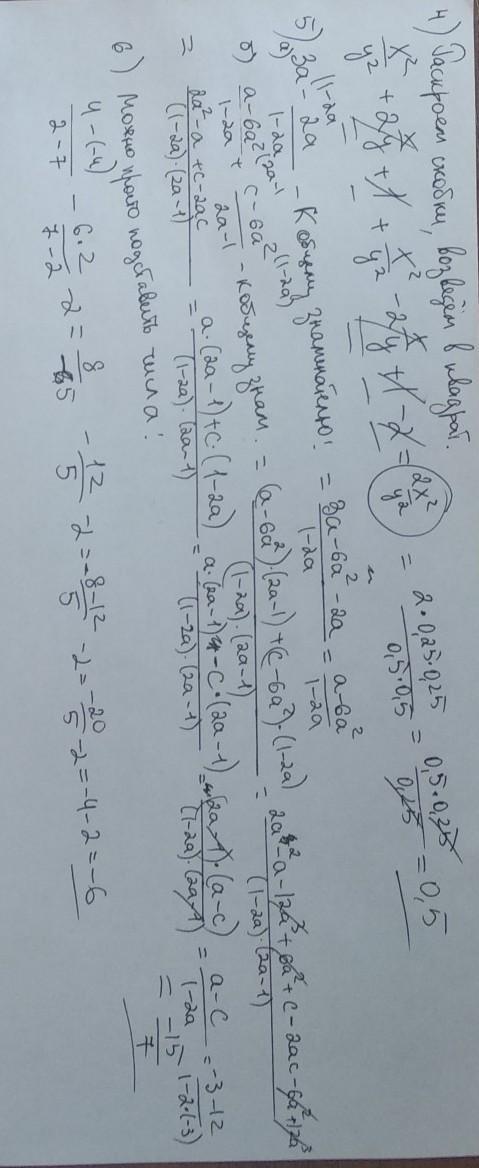 4) Раскроем скобки, возведём в квадрат.
x²/y² + 2x/y + 1 + x²/y² - 2x/y + 1 - 2 = 2x²/y² = 2·0,25·0,25/0,5·0,5 = 0,5·0,25/0,25 = 0,5
5)
а) 3a^(1-2a - 2a/1-2a - К общему знаменателю: = 3a-6a²-2a/1-2a = a-6a²/1-2a
б) a-6a²^(2a-1/1-2a + c-6a²^(1-2a)/2a-1 - к общему знам. = (a-6a²)·(2a-1)+(c-6a²)·(1-2a)/(1-2a)·(2a-1) = 2a²-a-12a³+6a²+c-2ac-6a²+12a³/(1-2a)·(2a-1)
= 2a²-a+c-2ac/(1-2a)·(2a-1) = a·(2a-1)+c·(1-2a)/(1-2a)·(2a-1) = a·(2a-1)-c·(2a-1)/(1-2a)·(2a-1) = (2a-1)·(a-c)/(1-2a)·(2a-1) = a-c/1-2a = -3-12/1-2·(-3)
= -15/7
6) Можно просто подставить числа:
4-(-4)/2-7 - 6·2/7-2 - 2 = 8/-5 - 12/5 - 2 = -8-12/5 - 2 = -20/5 - 2 = -4-2 = -6